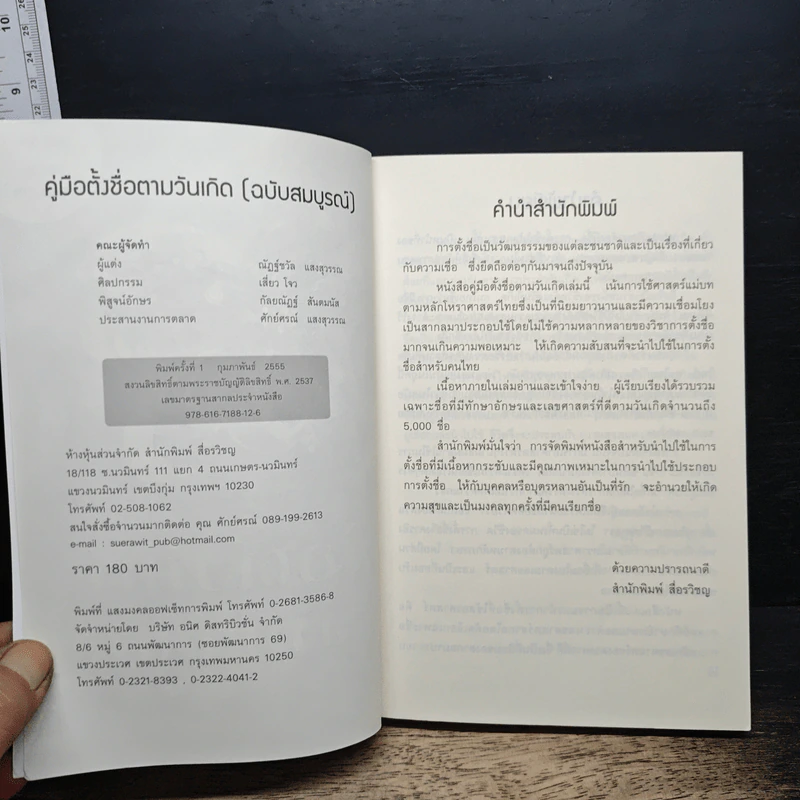 คู่มือตั้งชื่อตามวันเกิด (ฉบับสมบูรณ์)
คณะผู้จัดทำ
ผู้แต่ง ณัฏฐ์ชวัล แสงสุวรรณ
ศิลปกรรม เสี่ยว โจว
พิสูจน์อักษร กัลยณัฏฐ์ สันตมนัส
ประสานงานการตลาด ศักย์ศรณ์ แสงสุวรรณ
พิมพ์ครั้งที่ 1 กุมภาพันธ์ 2555
สงวนลิขสิทธิ์ตามพระราชบัญญัติลิขสิทธิ์ พ.ศ. 2537
เลขมาตรฐานสากลประจำหนังสือ
978-616-7188-12-6
ห้างหุ้นส่วนจำกัด สำนักพิมพ์ สื่อรวิชญ
18/118 ซ.นวมินทร์ 111 แยก 4 ถนนเกษตร-นวมินทร์
แขวงนวมินทร์ เขตบึงกุ่ม กรุงเทพฯ 10230
โทรศัพท์ 02-508-1062
สนใจสั่งซื้อจำนวนมากติดต่อ คุณ ศักย์ศรณ์ 089-199-2613
e-mail : suerawit_pub@hotmail.com
ราคา 180 บาท
พิมพ์ที่ แสงมงคลออฟเซ็ทการพิมพ์ โทรศัพท์ 0-2681-3586-8
จัดจำหน่ายโดย บริษัท อนิศ ดิสทริบิวชั่น จำกัด
8/6 หมู่ 6 ถนนพัฒนาการ (ซอยพัฒนาการ 69)
แขวงประเวศ เขตประเวศ กรุงเทพมหานคร 10250
โทรศัพท์ 0-2321-8393 , 0-2322-4041-2
คำนำสำนักพิมพ์
การตั้งชื่อเป็นวัฒนธรรมของแต่ละชนชาติและเป็นเรื่องที่เกี่ยว
กับความเชื่อ ซึ่งยึดถือต่อๆกันมาจนถึงปัจจุบัน
หนังสือคู่มือตั้งชื่อตามวันเกิดเล่มนี้ เน้นการใช้ศาสตร์แม่บท
ตามหลักโหราศาสตร์ไทยซึ่งเป็นที่นิยมยาวนานและมีความเชื่อมโยง
เป็นสากลมาประกอบใช้โดยไม่ใช้ความหลากหลายของวิชาการตั้งชื่อ
มากจนเกินความพอเหมาะ ให้เกิดความสับสนที่จะนำไปใช้ในการตั้ง
ชื่อสำหรับคนไทย
เนื้อหาภายในเล่มอ่านและเข้าใจง่าย ผู้เรียบเรียงได้รวบรวม
เฉพาะชื่อที่มีทักษาอักษรและเลขศาสตร์ที่ดีตามวันเกิดจำนวนถึง
5,000 ชื่อ
สำนักพิมพ์มั่นใจว่า การจัดพิมพ์หนังสือสำหรับนำไปใช้ในการ
ตั้งชื่อที่มีเนื้อหากระชับและมีคุณภาพเหมาะในการนำไปใช้ประกอบ
การตั้งชื่อ ให้กับบุคคลหรือบุตรหลานอันเป็นที่รัก จะอำนวยให้เกิด
ความสุขและเป็นมงคลทุกครั้งที่มีคนเรียกชื่อ
ด้วยความปรารถนาดี
สำนักพิมพ์ สื่อรวิชญ
10
9
26
25
24
23
22